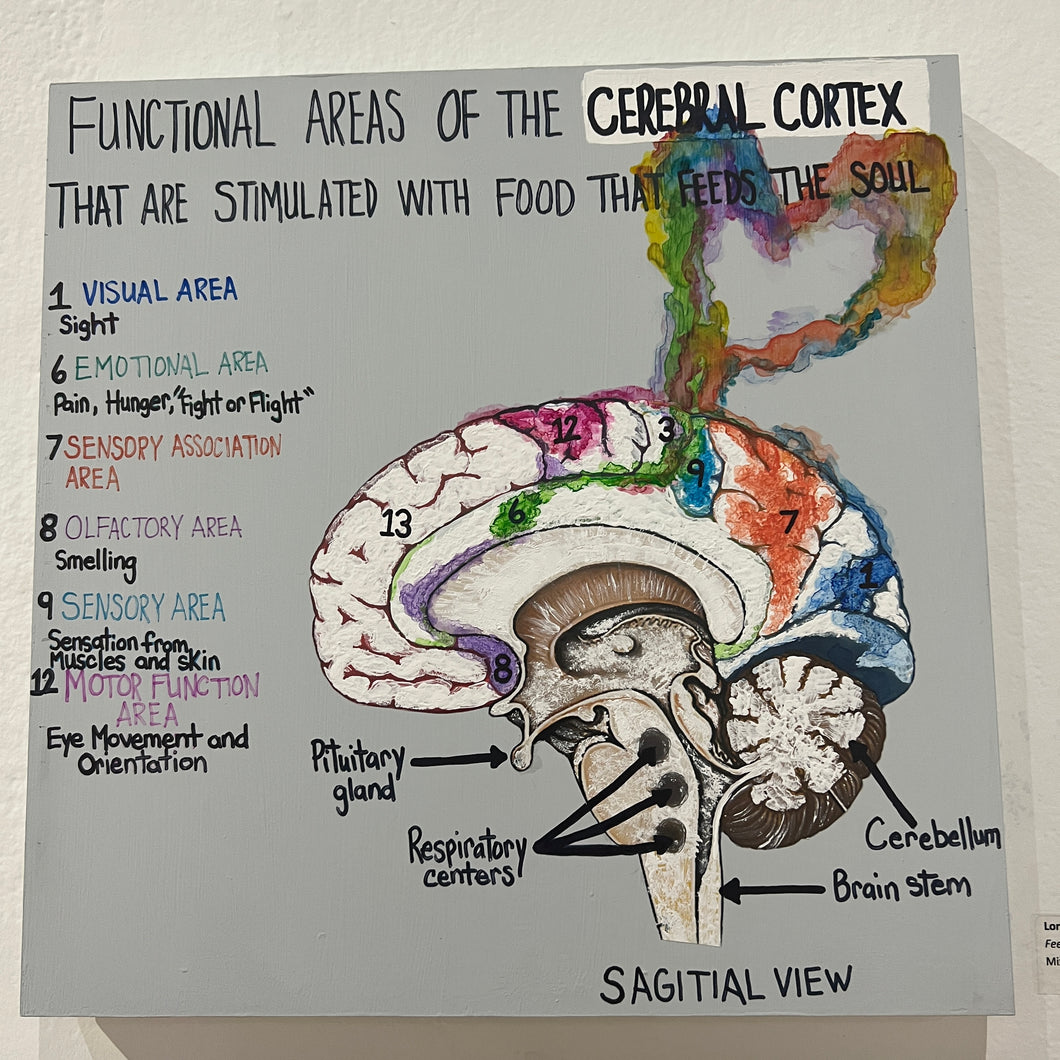 FUNCTIONAL AREAS OF THE CEREBRAL CORTEX
THAT ARE STIMULATED WITH FOOD THAT FEEDS THE SOUL
1 VISUAL AREA
Sight
6 EMOTIONAL AREA
Pain, Hunger, "Fight or Flight"
7 SENSORY ASSOCIATION
AREA
8 OLFACTORY AREA
Smelling
9 SENSORY AREA
Sensation from
Muscles and skin
12 MOTOR FUNCTION
AREA
Eye Movement and
Orientation
12
3
9
13
6
7
1
8
Pituitary
gland
Respiratory
centers
Cerebellum
Brain stem
SAGITIAL VIEW
Lor
Fee
Mi